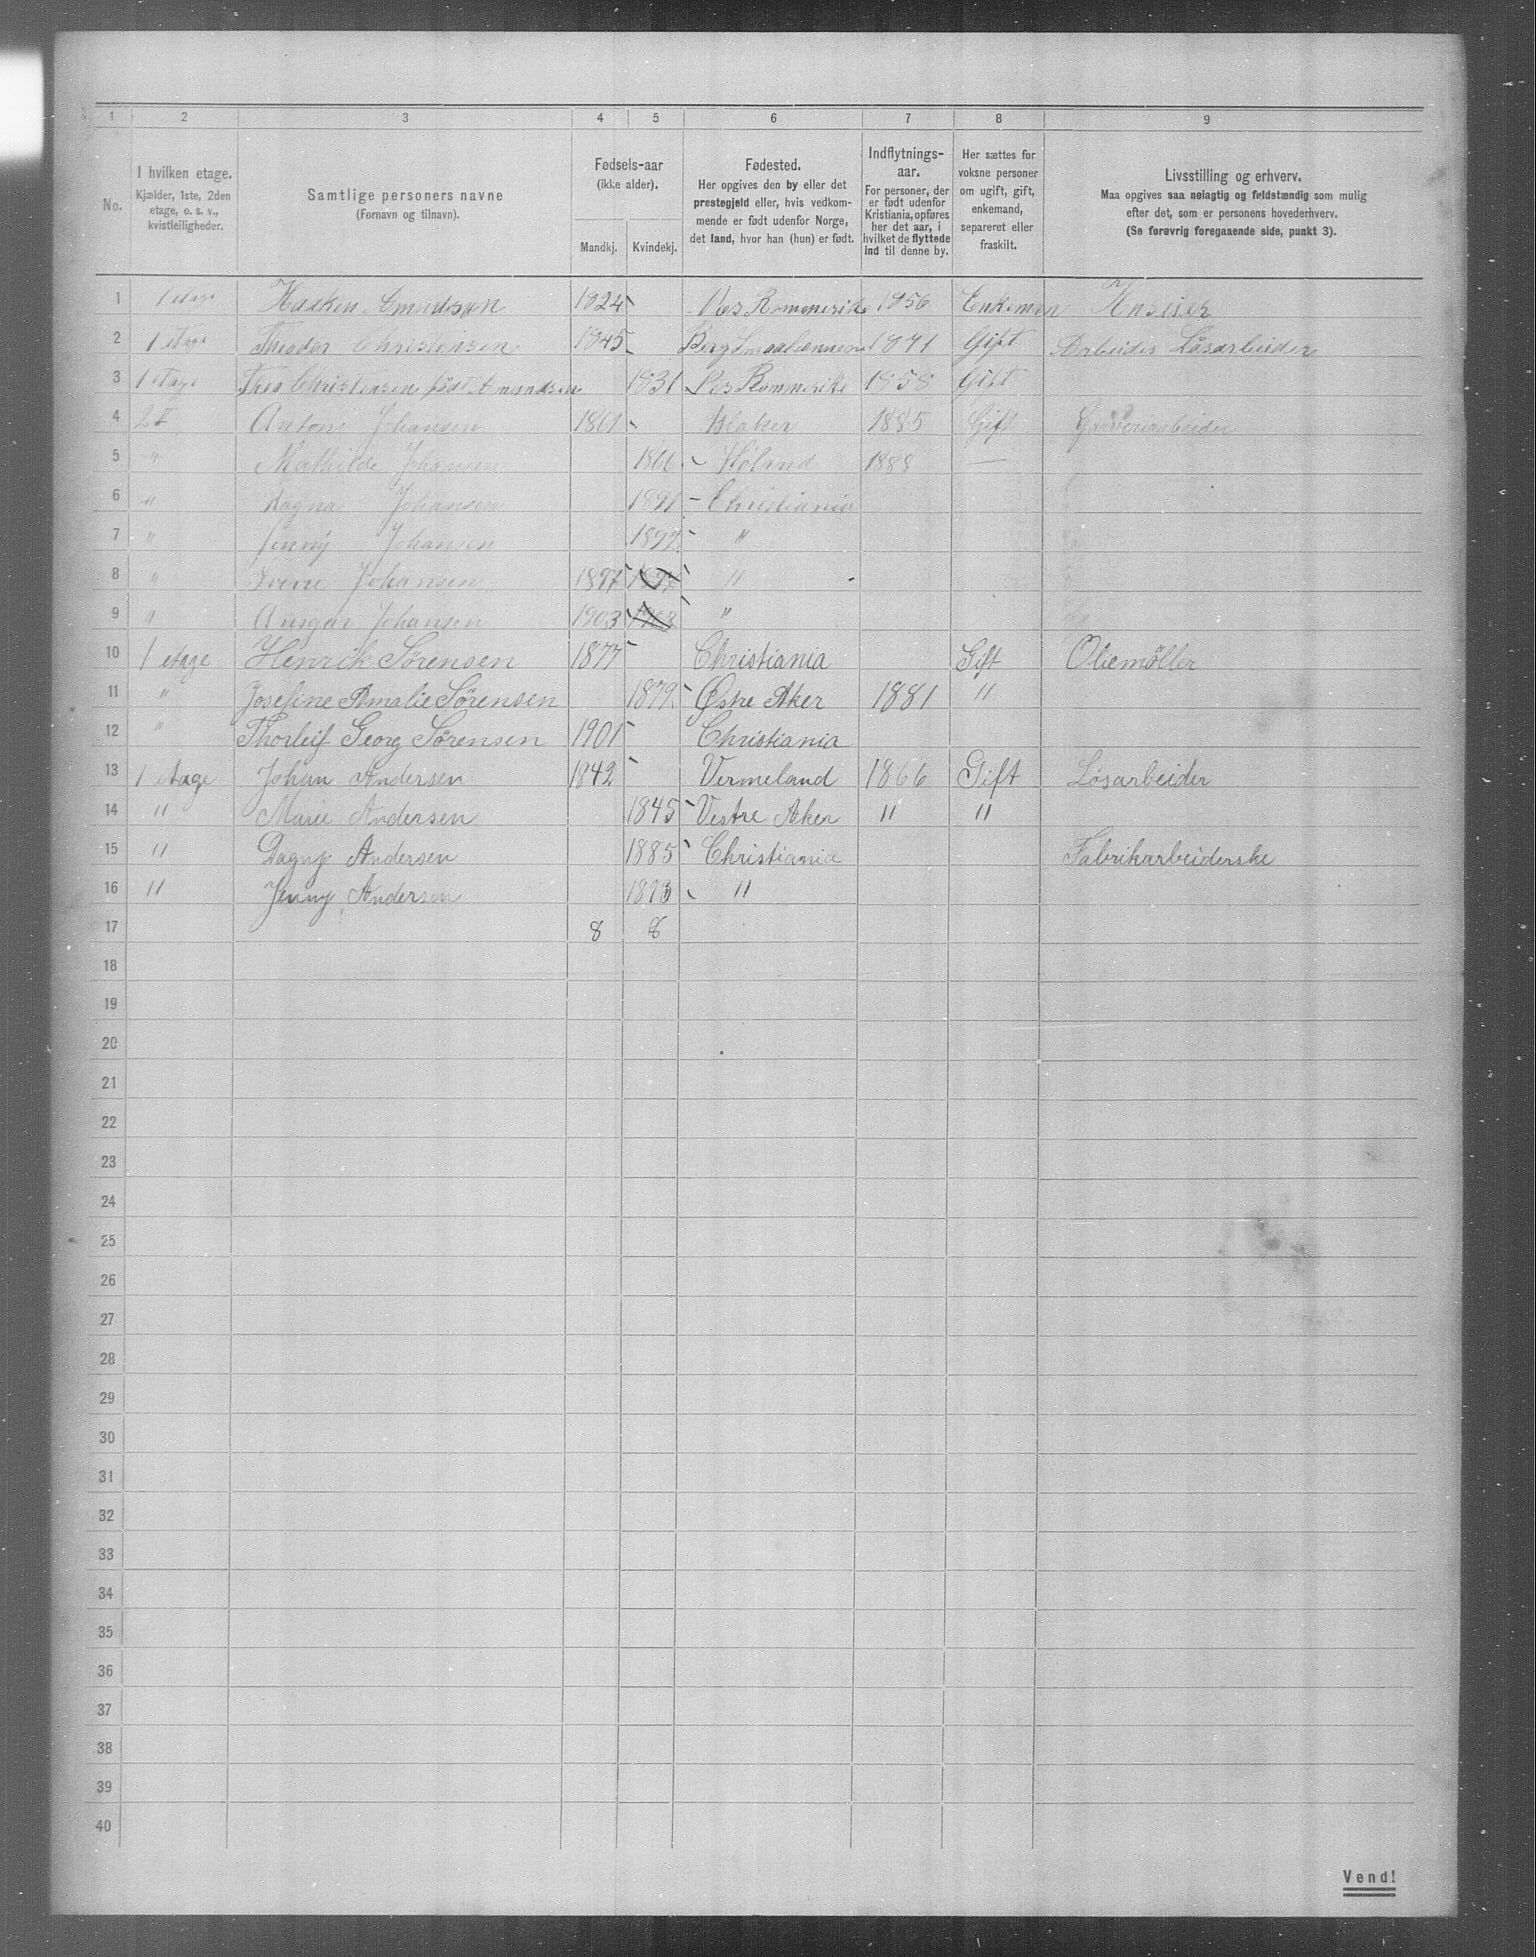 1 2 3 4 5 6 7 8 9
No.
I hvilken etage.
Kjælder, 1ste, 2den
etage, o. s. v.,
kvistleiligheder.
Samtlige personers navne
(Fornavn og tilnavn).
Fødsels-aar
(ikke alder).
Mandkj. Kvindekj.
Fødested.
Her opgives den by eller det
prestegjeld eller, hvis vedkom-
mende er født udenfor Norge,
det land, hvor han (hun) er født.
Indflytnings-
aar.
For personer, der
er født udenfor
Kristiania, opføres
her det aar, i
hvilket de flyttede
ind til denne by.
Her sættes for
voksne personer
om ugift, gift,
enkemand,
separeret eller
fraskilt.
Livsstilling og erhverv.
Maa opgives saa nøiagtig og feldstændig som mulig
efter det, som er personens hovederhverv.
(Se forøvrig foregaaende side, punkt 3).
1 1 etage Haaken Amundsøn 1824 Nes Rommerike 1856 Enkeman
2 1 etage Theodor Christensen 1845 Berg Smaalennene 1871 Gift Arbeider Løsarbeider
3 1 etage Thea Christensen født Amundsen 1831 Nes Rommerike 1858 Gift
4 2 Anton Johansen 1861 Blaker 1885 Gift
5 " Mathilde Johansen 1866 Høland 1888 —
6 " Ragna Johansen 1891 Christiania
7 " Jenny Johansen "
8 " Johansen 1897 1897 "
9 " Ansgar Johansen 1903 1903 "
10 1 etage Henrik Sørensen 1877 Christiania Gift Oliemøller
11 " Josefine Amalie Sørensen 1879 Østre Aker 1881 "
12 " Thorleif Georg Sørensen 1901 Christiania
13 1 etage Johan Andersen 1842 Vermeland 1866 Gift Løsarbeider
14 " Marie Andersen 1845 Vestre Aker " "
15 " Dagny Andersen 1885 Christiania Fabrikarbeiderske
16 " Jenny Andersen 1893 "
17 8 8
18
19
20
21
22
23
24
25
26
27
28
29
30
31
32
33
34
35
36
37
38
39
40
Vend!